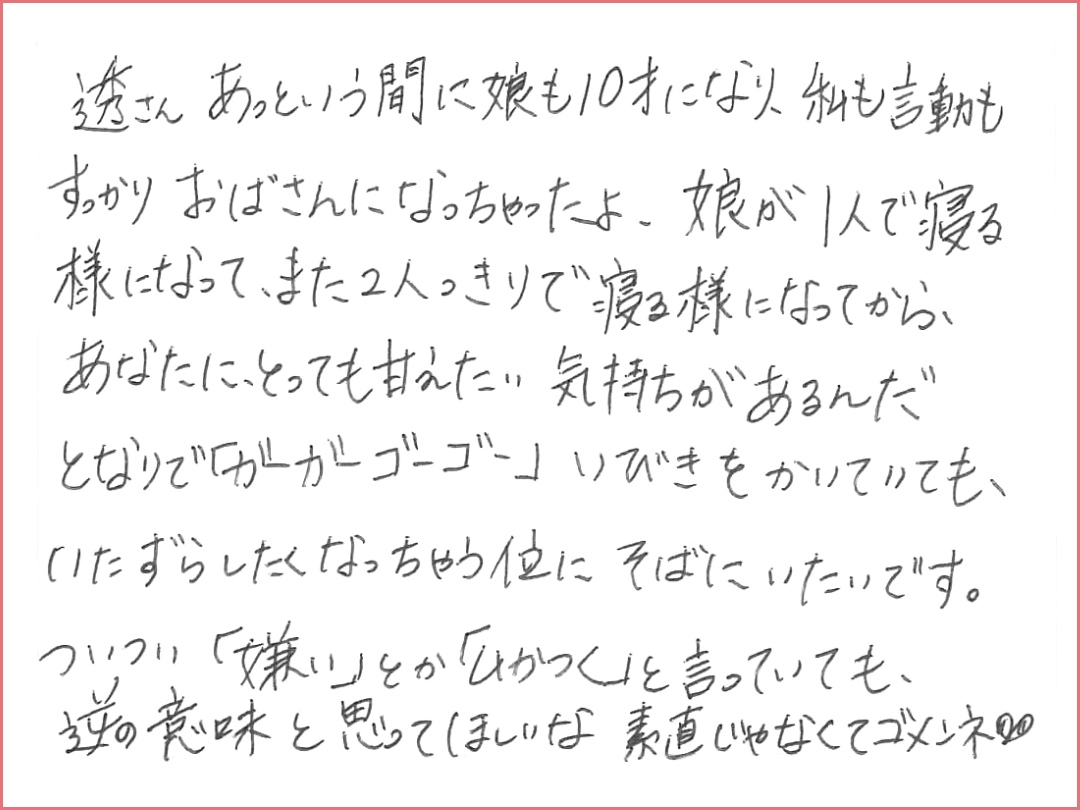 透さん あっという間に娘も10才になり、私も言動も
すっかり おばさんになっちゃったよ、娘が1人で寝る
様になって、また2人っきりで寝る様になってから、
あなたに、とっても甘えたい 気持ちがあるんだ
となりで「ガーガーゴーゴー」いびきをかいていても、
いたずらしたくなっちゃう位に そばにいたいです。
ついつい「嫌い」とか「ムカつく」と言っていても、
逆の意味と思ってほしいな 素直じゃなくてゴメンネ